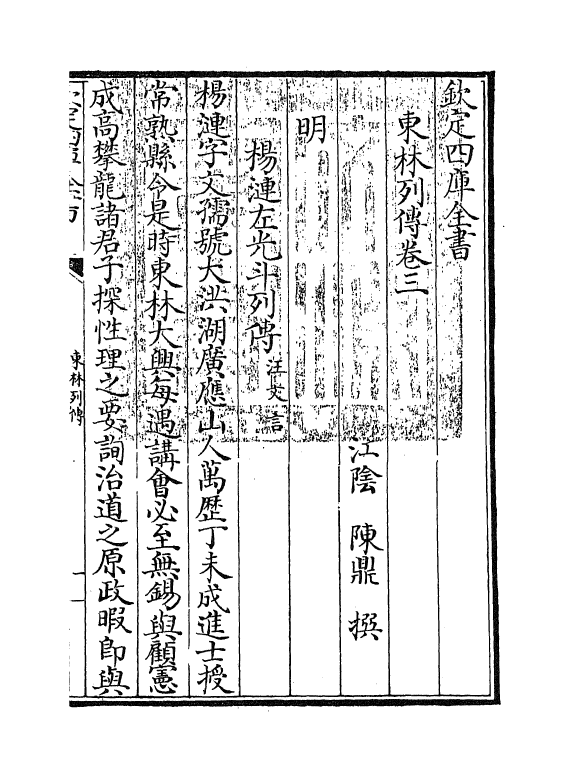 欽定四庫全書
東林列傳卷三
江陰 陳鼎 撰
明
楊漣左光斗列傳 汪文言
楊漣字文孺號大洪湖廣應山人萬歷丁未成進士授
常熟縣令是時東林大興每遇講會必至無錫與顧憲
成高攀龍諸君子探性理之要詢治道之原政暇即與
東林列傳